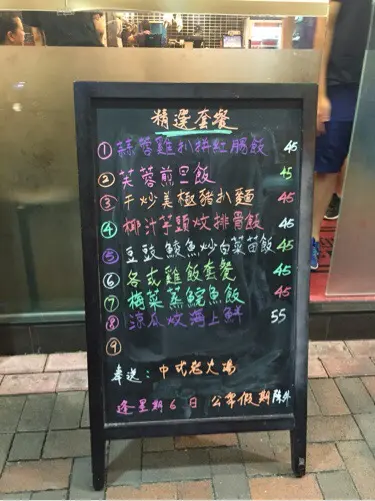 精選套餐
① 蒜蓉雞扒拼紅腸飯 45
② 芙蓉煎旦飯 45
③ 干炒美極豬扒麵 45
④ 椰汁芋頭炆排骨飯 45
⑤ 豆豉鯪魚炒白菜苗飯 45
⑥ 各式雞飯套餐 45
⑦ 梅菜蒸鯇魚飯 45
⑧ 涼瓜炆海上鮮 55
⑨
奉送：中式老火湯
逢星期6 日 公眾假期除外